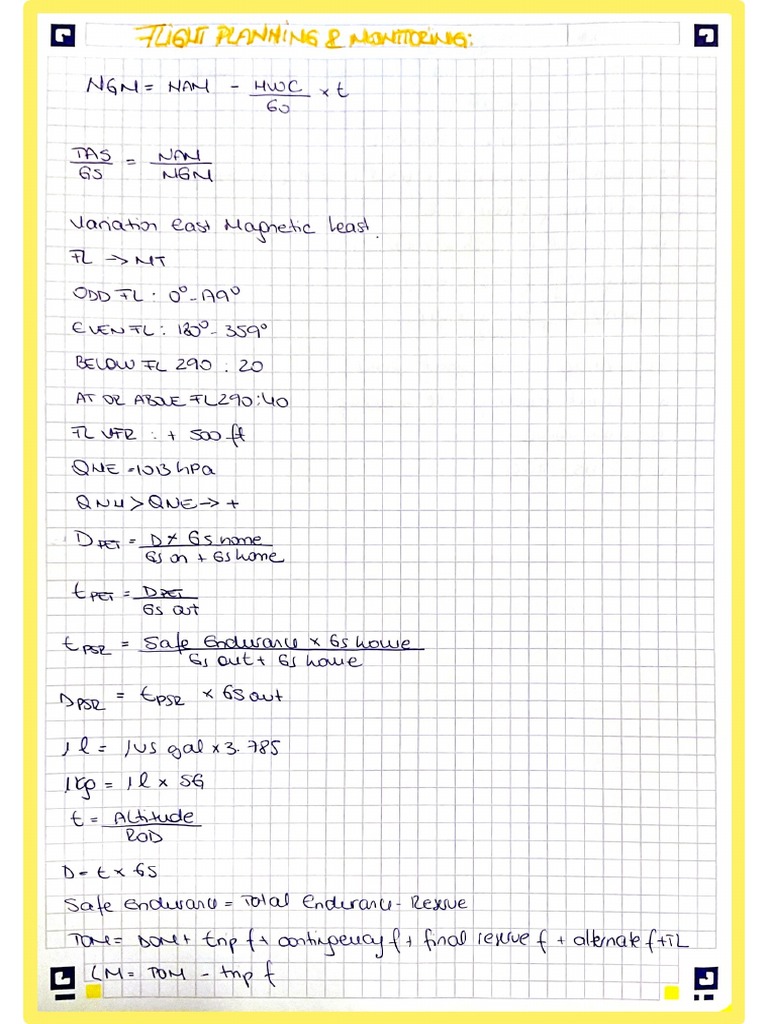 FLIGHT PLANNING & MONITORING:
NGM = NAM - HWC/60 x t
TAS/GS = NAM/NGM
Variation East Magnetic Least.
FL -> MT
ODD FL: 0° - 179°
EVEN FL: 180° - 359°
BELOW FL 290 : 20
AT OR ABOVE FL290:40
FL VFR : + 500 ft
QNE = 1013 hPa
QNH > QNE -> +
D PET = D x Gs home / Gs on + Gs home
t PET = D PET / Gs out
t PSR = Safe Endurance x Gs home / Gs out + Gs home
D PSR = t PSR x GS out
1 l = 1 US gal x 3.785
1 kg = 1 l x SG
t = Altitude / ROD
D = t x GS
Safe Endurance = Total Endurance - Reserve
TOM = DOM + trip f + contingency f + final reserve f + alternate f + TL
LM = TOM - trip f